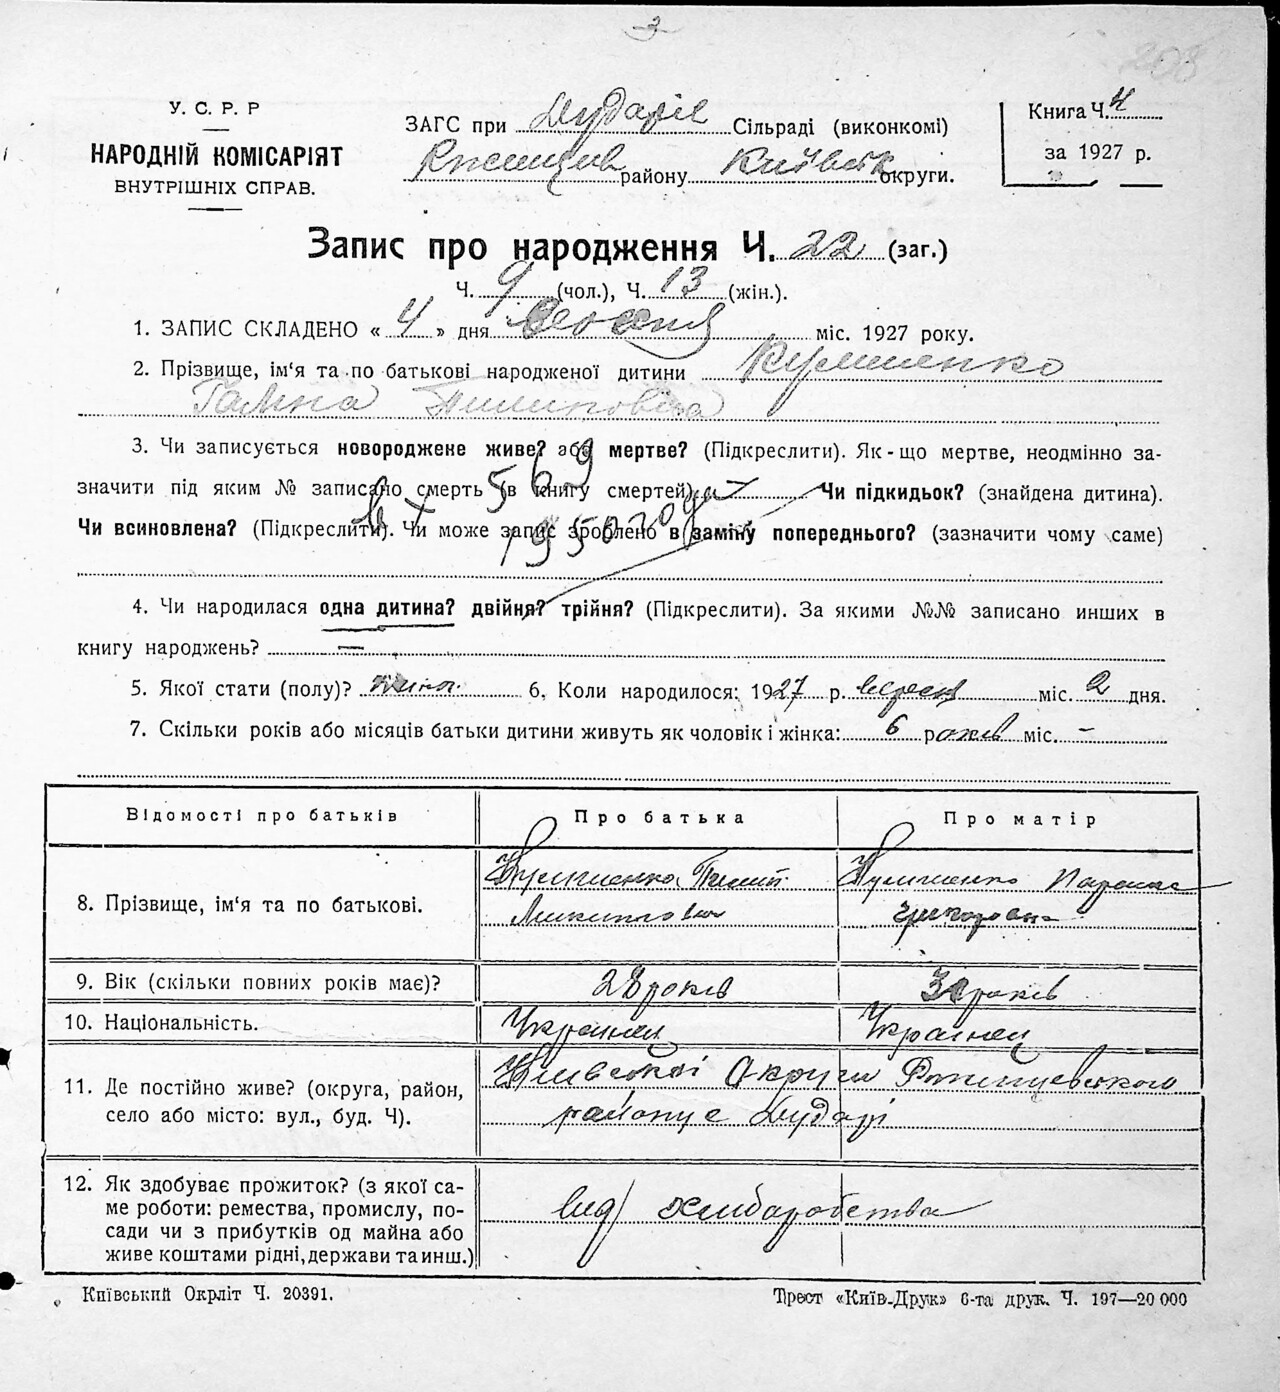 У. С. Р. Р
НАРОДНІЙ КОМІСАРІЯТ
ВНУТРІШНІХ СПРАВ.
208
ЗАГС при Дударів Сільраді (виконкомі)
району Київськ округи.
Книга Ч. 4
за 1927 р.
Запис про народження Ч. 22 (заг.)
Ч. 9 (чол.), Ч. 13 (жін.).
1. ЗАПИС СКЛАДЕНО « 4 » дня міс. 1927 року.
2. Прізвище, ім'я та по батькові народженої дитини
Галина Пилиповна
3. Чи записується новороджене живе? або мертве? (Підкреслити). Як-що мертве, неодмінно за-
значити під яким № записано смерть (в книгу смертей) Чи підкидьок? (знайдена дитина).
569
Чи всиновлена? (Підкреслити). Чи може запис зроблено в заміну попереднього? (зазначити чому саме)
4. Чи народилася одна дитина? двійня? трійня? (Підкреслити). За якими №№ записано инших в
книгу народжень? —
5. Якої стати (полу)? жіно. 6. Коли народилося: 1927 р. вересня міс. 2 дня.
7. Скільки років або місяців батьки дитини живуть як чоловік і жінка: 6 років міс. –
Відомості про батьків Про батька Про матір
8. Прізвище, ім'я та по батькові. Пилип Параска
Микитович Григоровна
9. Вік (скільки повних років має)? 28 років років
10. Національність. Українец Українец
11. Де постійно живе? (округа, район, Київської Округи Ржищевського
село або місто: вул., буд. Ч). району с Дударі
12. Як здобуває прожиток? (з якої са-
ме роботи: ремества, промислу, по- від хліборобства
сади чи з прибутків од майна або
живе коштами рідні, держави та инш.)
Київський Окрліт Ч. 20391.
Трест «Київ-Друк» 6-та друк. Ч. 197—20 000